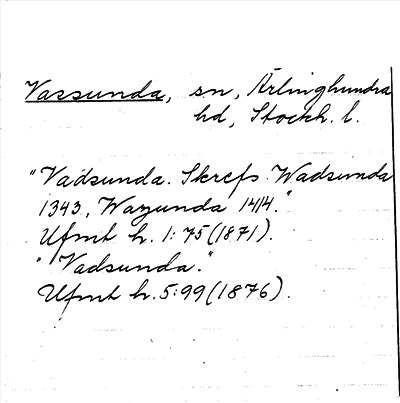 Vassunda, sn, Ärlinghundra
hd, Stockh. l.
"Vadsunda. Skrefs Wadsunda
1343, Wazunda 1414."
Ufmt h. 1:75 (1871).
"Vadsunda."
Ufmt h. 5:99 (1876).